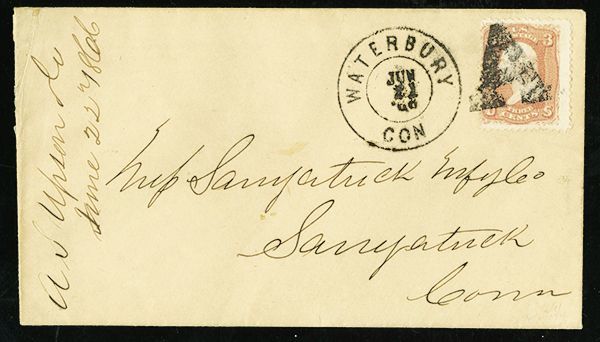 A S Upson Co
June 22 1866
WATERBURY
JUN
21
'66
CON
U.S.
POSTAGE
3 3
THREE
CENTS
Saugatuck Mfg Co
Saugatuck
Conn